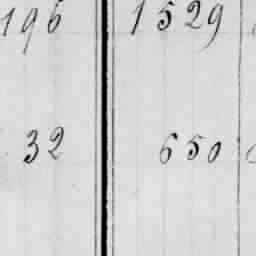 196 1529
32 650